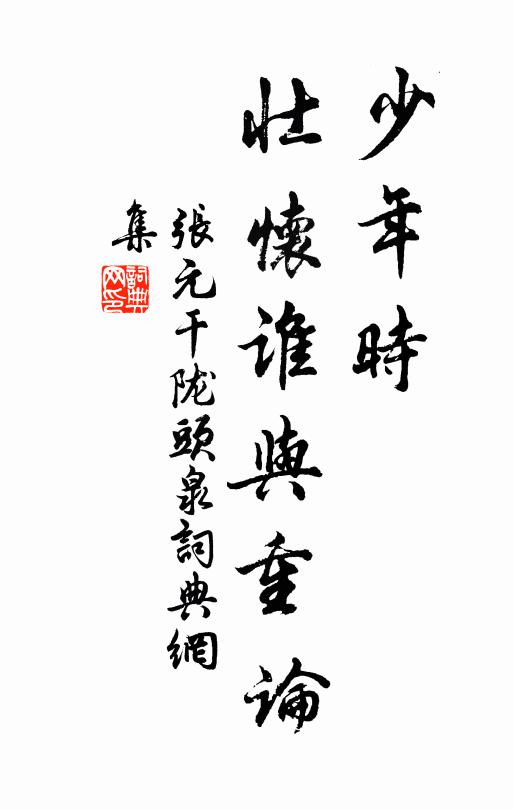 少年時
壯懷誰與重論
張元干陇頭泉詞典網
集
詞典
网印